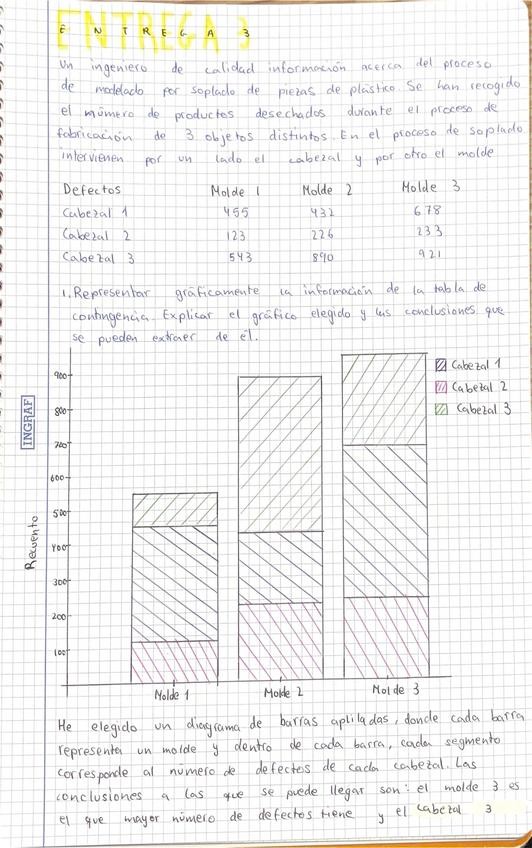 ENTREGA 3
Un ingeniero de calidad información acerca del proceso
de modelado por soplado de piezas de plástico. Se han recogido
el número de productos desechados durante el proceso de
fabricación de 3 objetos distintos. En el proceso de soplado
intervienen por un lado el cabezal y por otro el molde
Defectos Molde 1 Molde 2 Molde 3
Cabezal 1 455 432 678
Cabezal 2 123 226 233
Cabezal 3 543 890 921
1. Representar gráficamente la información de la tabla de
contingencia. Explicar el gráfico elegido y las conclusiones que
se pueden extraer de él.
INGRAF
Recuento
900
800
700
600
500
400
300
200
100
Cabezal 1
Cabezal 2
Cabezal 3
Molde 1 Molde 2 Molde 3
He elegido un diagrama de barras apliladas, donde cada barra
representa un molde y dentro de cada barra, cada segmento
corresponde al numero de defectos de cada cabezal. Las
conclusiones a las que se puede llegar son: el molde 3 es
el que mayor número de defectos tiene y el cabezal 3